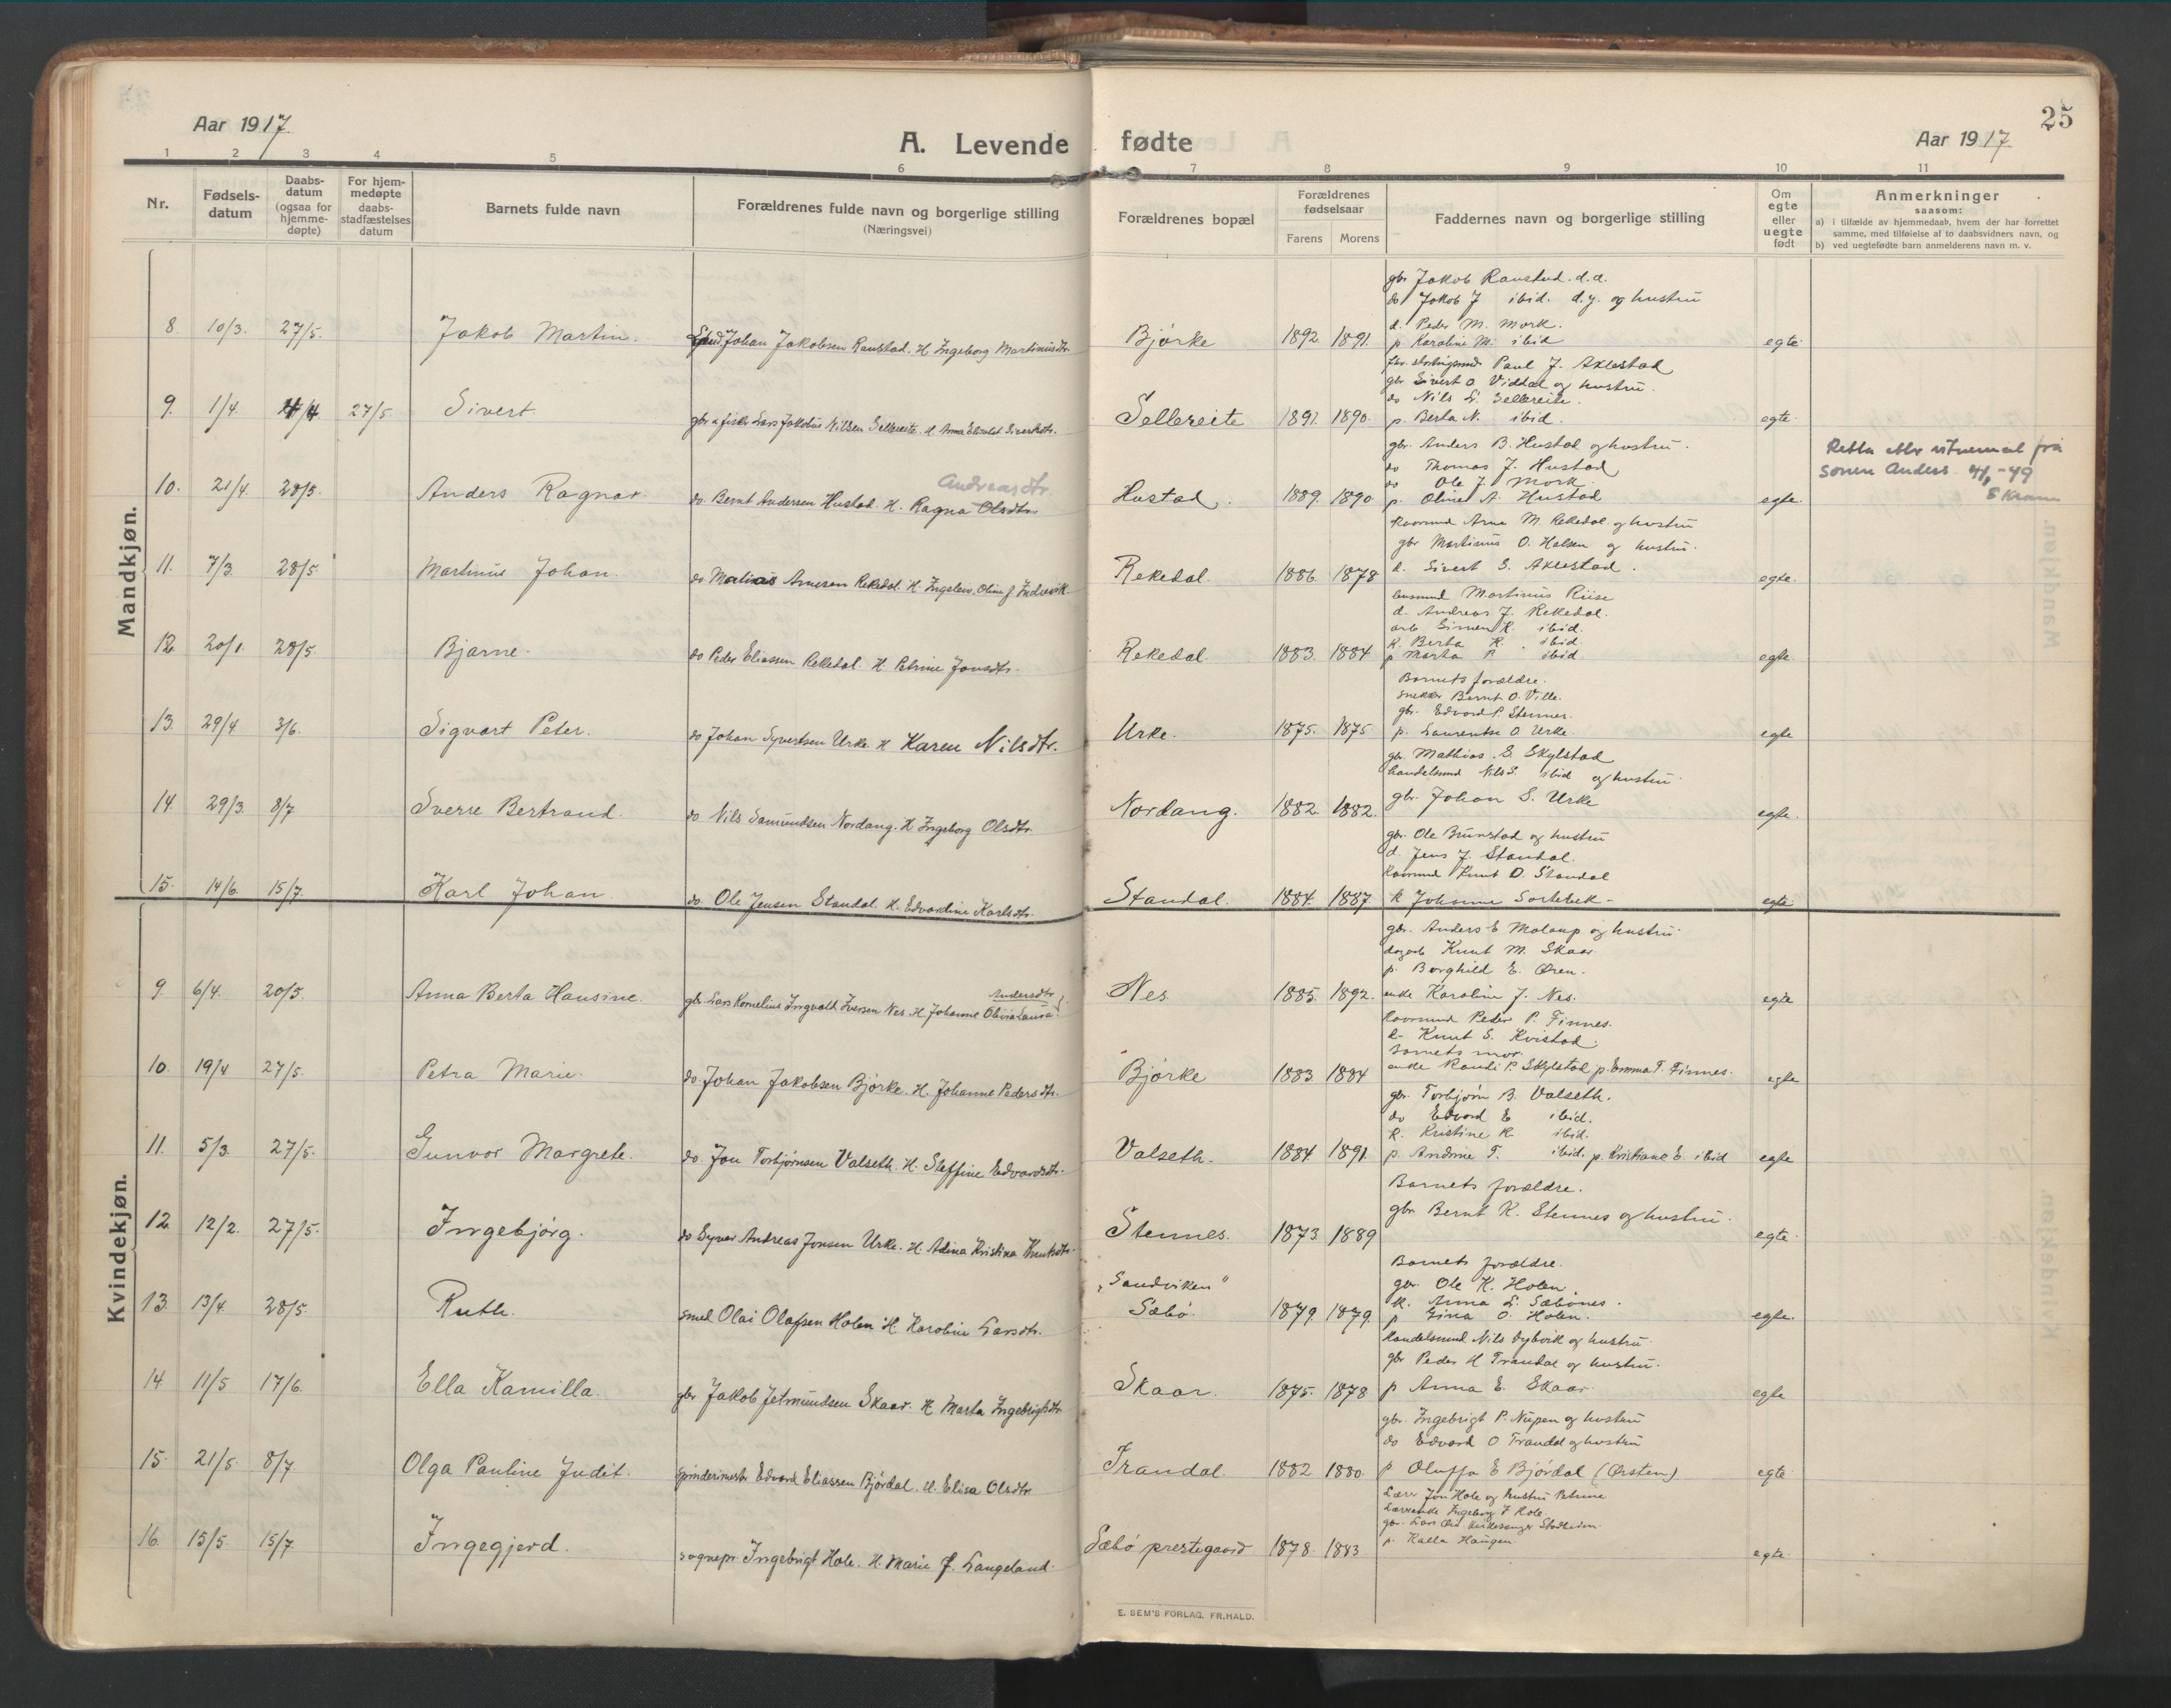 25
Aar 1917.
A. Levende fødte
Aar 1917.
1 2 3 4 5 6 7 8 9 10 11
Nr.
Fødsels-
datum
Daabs-
datum
(ogsaa for
hjemme-
døpte)
For hjem-
medøpte
daabs-
stadfæstelses
datum
Barnets fulde navn
Forældrenes fulde navn og borgerlige stilling
(Næringsvei)
Forældrenes bopæl
Forældrenes
fødselsaar
Farens Morens
Faddernes navn og borgerlige stilling
Om
egte
eller
uegte
født
Anmerkninger
saasom:
a) i tilfælde av hjemmedaab, hvem der har forrettet
samme, med tilføielse af to daabsvidners navn, og
b) ved uegtefødte barn anmelderens navn m. v.
Mandkjøn.
8. 10/3. 27/5. Jakob Martin. Johan Jakobsen Ranstad. H. Ingeborg Martinusdtr. Bjørke 1892. 1891. egte
gbr Jakob Ranstad. d.a.
do Jakob J ibid. d.y. og hustru
d. Peder M. Mork.
p. Karoline M. ibid
9. 1/4. 4/4 27/5. Sivert. gbr o fisker Lars Jakobus Nilsen Sellereite. H. Anna Elisabet Sivertsdtr. Sellereite 1891. 1890. egte.
Paul J. Aklestad
gbr Sivert O. Viddal og hustru.
do Nils L. Sellereite.
p. Berta N. ibid.
10. 21/4. 28/5. Anders Ragnar. do. Bernt Andersen Hustad. H. Ragna Olsdtr. Andreasdtr. Hustad. 1889. 1890 egte.
gbr. Anders B. Hustad og hustru.
do Thomas J. Hustad
do Ole J. Mork.
p. Oline A. Hustad
Retta etter vitnemål frå
sonen Anders 4/1,-49
S Kram
11. 7/3. 28/5 Martinus Johan. do Matias Arnesen Rekedal. H. Ingeleiv Oline J Indrevik. Rekedal. 1886. 1878 egte.
kaarmand Arne M. Rekedal og hustru
gbr Martinus O. Halsen og hustru.
d. Sivert S. Aklestad.
12. 20/1. 28/5. Bjarne. do Peder Eliassen Rekedal. H. Petrine Jonsdtr. Rekedal. 1883. 1884 egte.
lensmand Martinus Riise
d. Andreas J. Rekedal.
arb Simen R. ibid.
K. Berta R. ibid
p Marta P. ibid
13. 29/4. 3/6. Sigvart Peter. do Johan Syvertsen Urke. H Karen Nilsdtr. Urke. 1875. 1875 egte
Barnets forældre.
snekker Bernt O. Ville.
gbr. Edvard P. Stennes.
p. Laurentse O. Urke.
14. 29/3. 8/7 Sverre Bertrand. do Nils Samundsen Nordang. H Ingeborg Olsdtr. Nordang. 1882. 1882. egte.
gbr. Mathias S. Skylstad
handelsmd Nils S. ibid og hustru.
gbr. Johan S. Urke
15. 14/6. 15/7. Karl Johan do. Ole Jensen Standal. H. Edvardine Karlsdtr. Standal. 1884. 1887. egte
gbr. Ole Brunstad og hustru
d. Jens J. Standal.
kaarmd Knut O. Standal
K Johanne Sortebek-
Kvindekjøn.
9. 6/4. 20/5. Anna Berta Hansine. gbr. Lars Kornelius Ingvald Iversen Nes. H. Johanne Olivia Laura Andersdtr. Nes. 1885. 1892. egte
gbr. Anders E Molaup og hustru.
dagarb Knut M. Skaar
p. Borghild E. Øren.
enke Karoline J. Nes.
10. 19/4 27/5. Petra Marie. do. Johan Jakobsen Bjørke. H. Johanne Pedersdtr. Bjørke 1883. 1884 egte
kaarmand Peder P. Finnes.
d- Knut S. Kvistad.
barnets mor.
enke Randi P. Skylstad p. Emma T. Finnes.
11. 5/3. 27/5. Gunvor Margrete. do. Jon Torbjørnsen Valseth. H. Steffine Edvardsdtr. Valseth. 1884 1891. egte
gbr. Torbjørn B. Valseth.
do Edvard E ibid.
K. Kristine K ibid.
p. Andrine T. ibid. p. Kristiane E. ibid
12. 12/2. 27/5. Ingebjørg. do Syver Andreas Jonsen Urke. H. Adina Kristina Knutsdtr. Stennes. 1873 1889 egte.
Barnets forældre.
gbr. Bernt K. Stennes og hustru.
13. 13/4. 28/5. Ruth. smed Olai Olafsen Holen H Karoline Larsdtr. "Sandviken"
Sæbø. 1879. 1879. egte.
Barnets forældre.
gbr. Ole K. Holen.
K. Anna L. Sæbønes.
p Jina O. Holen.
14 11/5 17/6. Ella Kamilla. gbr Jakob Jetmundsen Skaar. H Marta Ingebrigtsdtr Skaar. 1875. 1878 egte
handelsmd Nils Dybvik og hustru
gbr Peder H Trandal og hustru.
p Anna E. Skaar.
15. 21/5. 8/7. Olga Pauline Judit. spinderimester Edvard Eliassen Bjørdal. H. Elisa Olsdtr. Trandal. 1882. 1880. egte.
gbr. Ingebrigt P. Nupen og hustru
do Edvard O Trandal og hustru
p Oluffa E Bjørdal (Ørsten)
16. 15/5. 15/7. Ingegjerd. sognepr. Ingebrigt Hole. H. Marie J. Langeland. Sæbø prestegaard. 1878. 1883 egte.
Lærer Jon Hole og hustru Petrine
Lærerenke Ingeborg J Hole
gbr. Lars kirkesanger Stodheim.
p. Kalla Haugen
E. SEM'S FORLAG, FR.HALD.